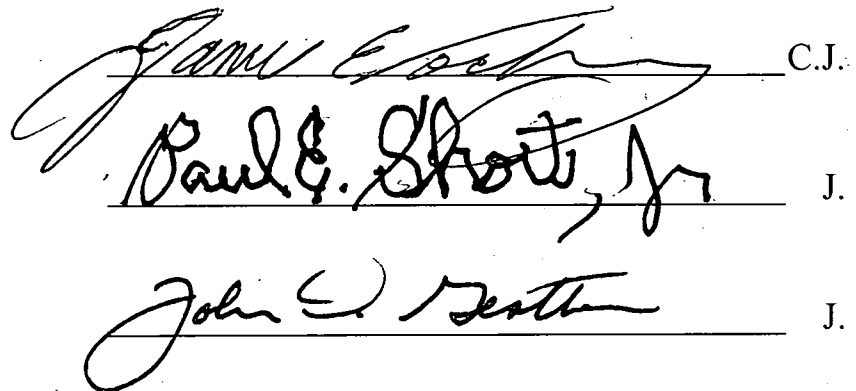 James E. C.J.
Paul E. Short, Jr J.
John J.